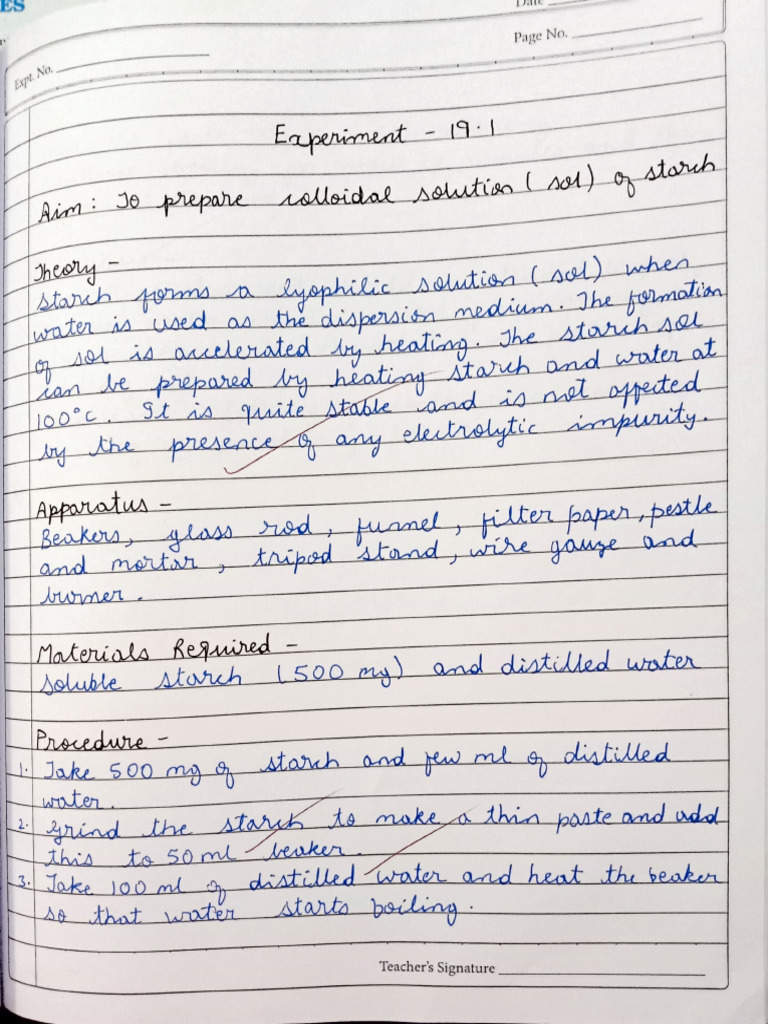 ES
Date
Page No.
Expt. No.
Experiment - 19.1
Aim : To prepare colloidal solution ( sol ) of starch
Theory -
Starch forms a lyophilic solution ( sol ) when
water is used as the dispersion medium. The formation
of sol is accelerated by heating. The starch sol
can be prepared by heating starch and water at
100°c. It is quite stable and is not affected
by the presence of any electrolytic impurity.
Apparatus -
Beakers, glass rod, funnel, filter paper, pestle
and mortar, tripod stand, wire gauze and
burner.
Materials Required -
Soluble starch (500 mg) and distilled water
Procedure -
1. Take 500 mg of starch and few ml of distilled
water.
2. Grind the starch to make a thin paste and add
this to 50 ml beaker.
3. Take 100 ml of distilled water and heat the beaker
so that water starts boiling.
Teacher's Signature